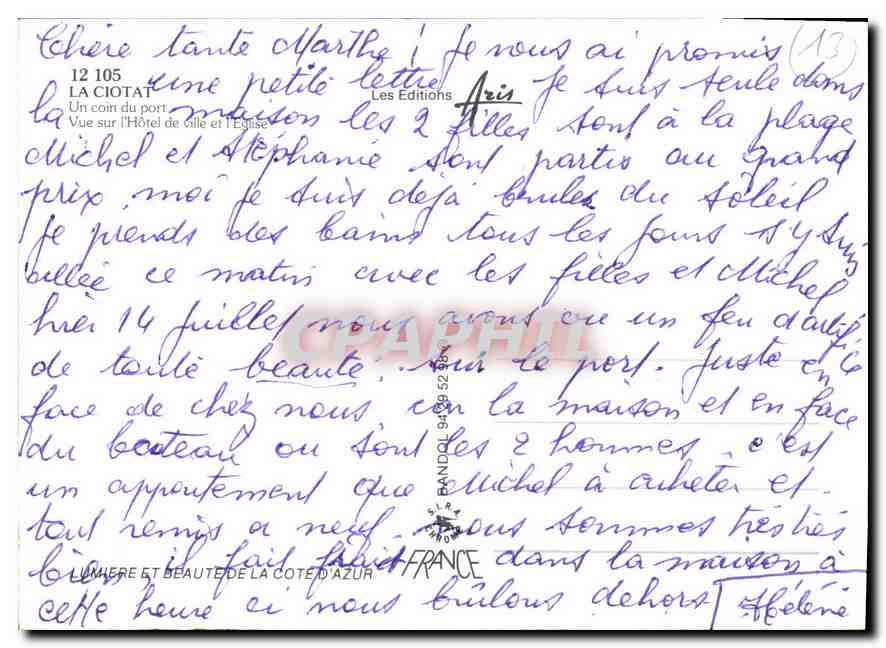 Chère tante Marthe ! Je vous ai promis (13)
12 105
LA CIOTAT
Un coin du port
Vue sur l'Hôtel de ville et l'Eglise
Les Editions Aris
une petite lettre Je suis seule dans
la maison les 2 filles sont à la plage
Michel et Stéphanie sont partis au grand
prix, moi je suis déjà brulée du soleil
Je prends des bains tous les jours s'y suis
allée ce matin avec les filles et Michel
hier 14 Juillet nous avons eu un feu d'artifice
de toute beauté. sur le port. Juste en
face de chez nous car la maison et en face
du bateau ou sont les 2 hommes, c'est
un appartement que Michel à acheter et
tout remis a neuf, nous sommes très très
bien, il fait frait dans la maison à
cette heure ci nous brûlons dehors Hélène
LUMIERE ET BEAUTE DE LA COTE D'AZUR
FRANCE
S.I.R.A. CHROME
BANDOL 94 29 52 98
CPAPHIL